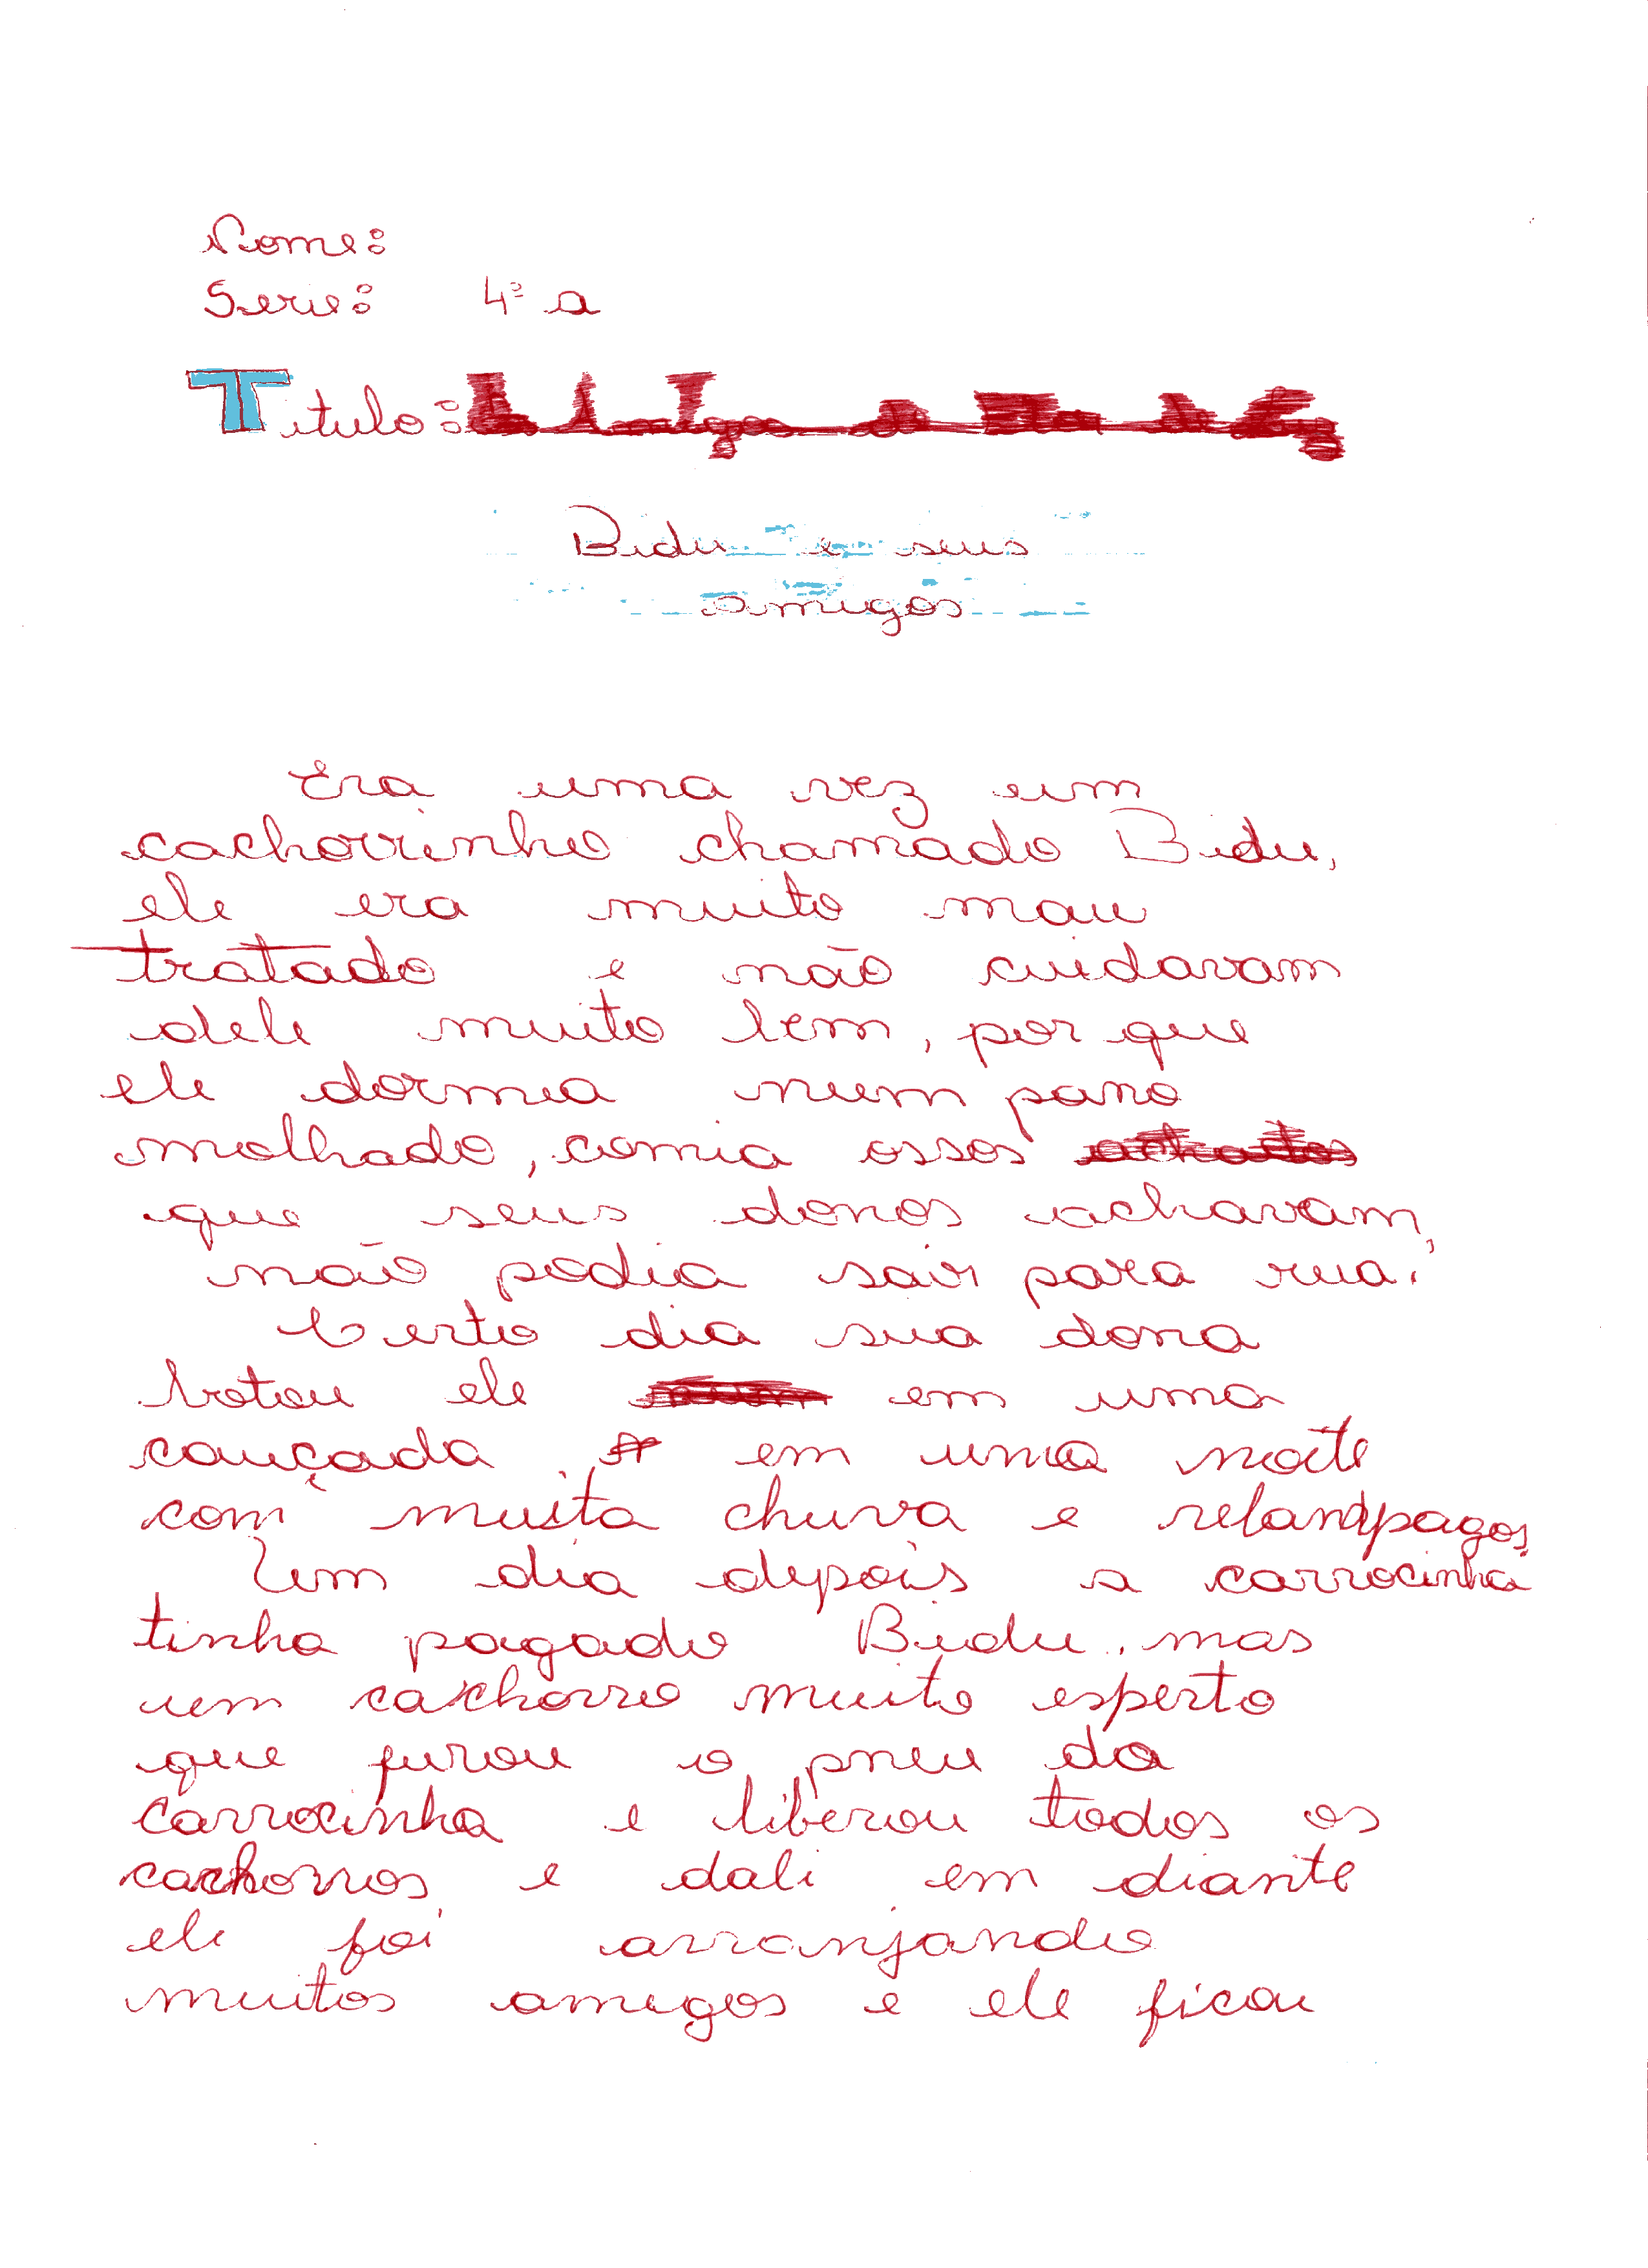 Nome:
Serie: 4ª a
Titulo:
Bidu e seus
amigos
Era uma vez um
cachorrinho chamado Bidu,
ele era muito mau
tratado e não cuidavam
dele muito bem, por que
ele dormia num pano
molhado, comia ossos
que seus donos achavam,
não podia sair para rua.
Certo dia sua dona
botou ele em uma
cauçada, em uma noite
com muita chuva e relampagos,
Um dia depois a carrocinha
tinha pagado Bidu, mas
um cachorro muito esperto
que furou o pneu da
carrocinha e liberou todos os
cachorros e dali em diante
ele foi arranjando
muitos amigos e ele ficou